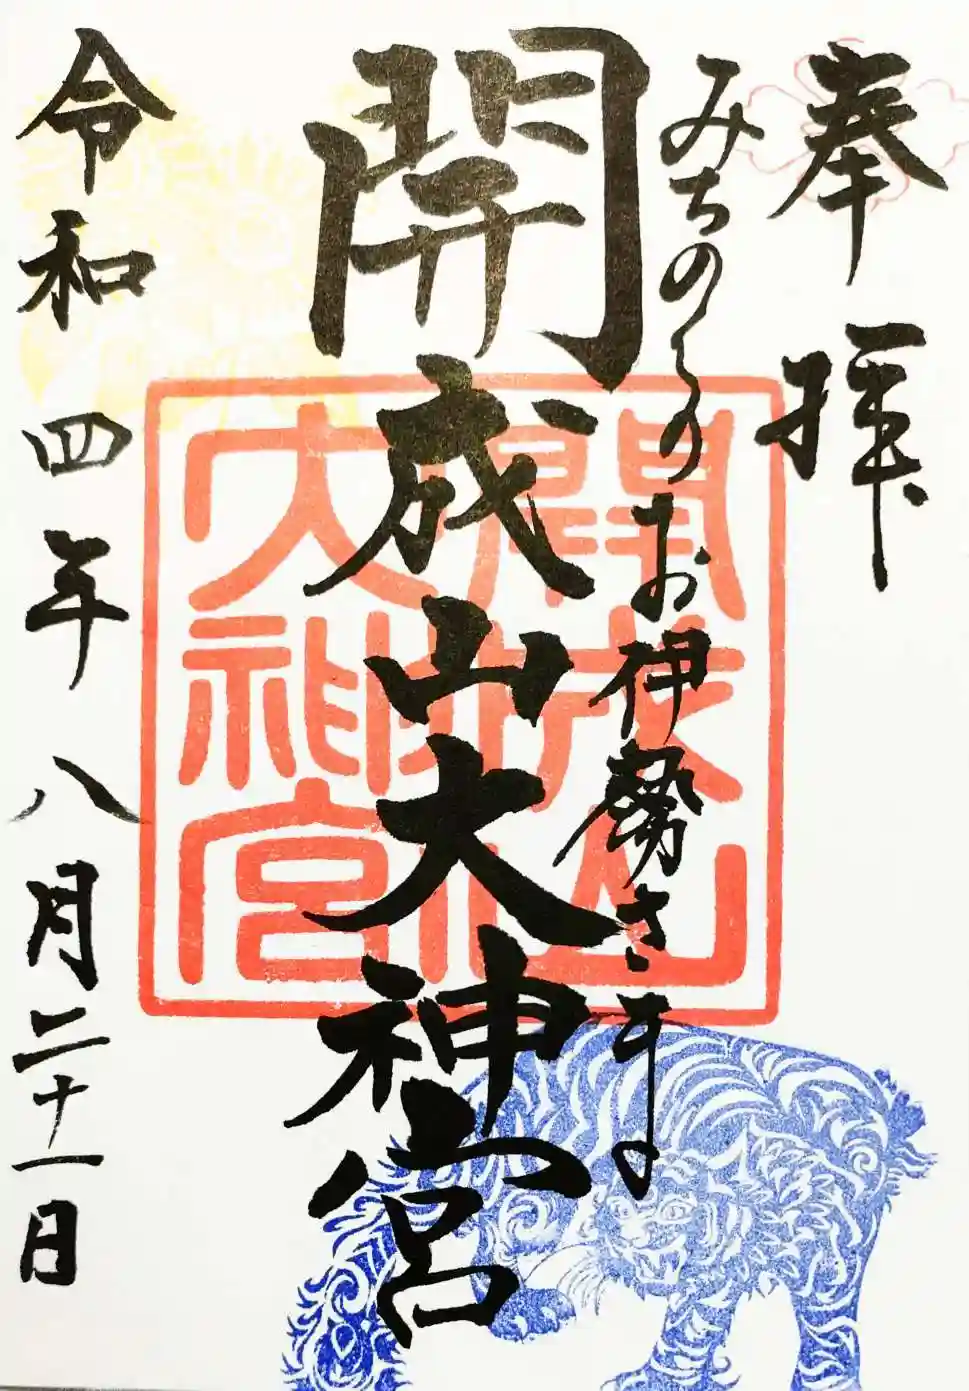 奉拝
みちのくのお伊勢さま
開成山大神宮
開成山大神宮
令和四年八月二十一日